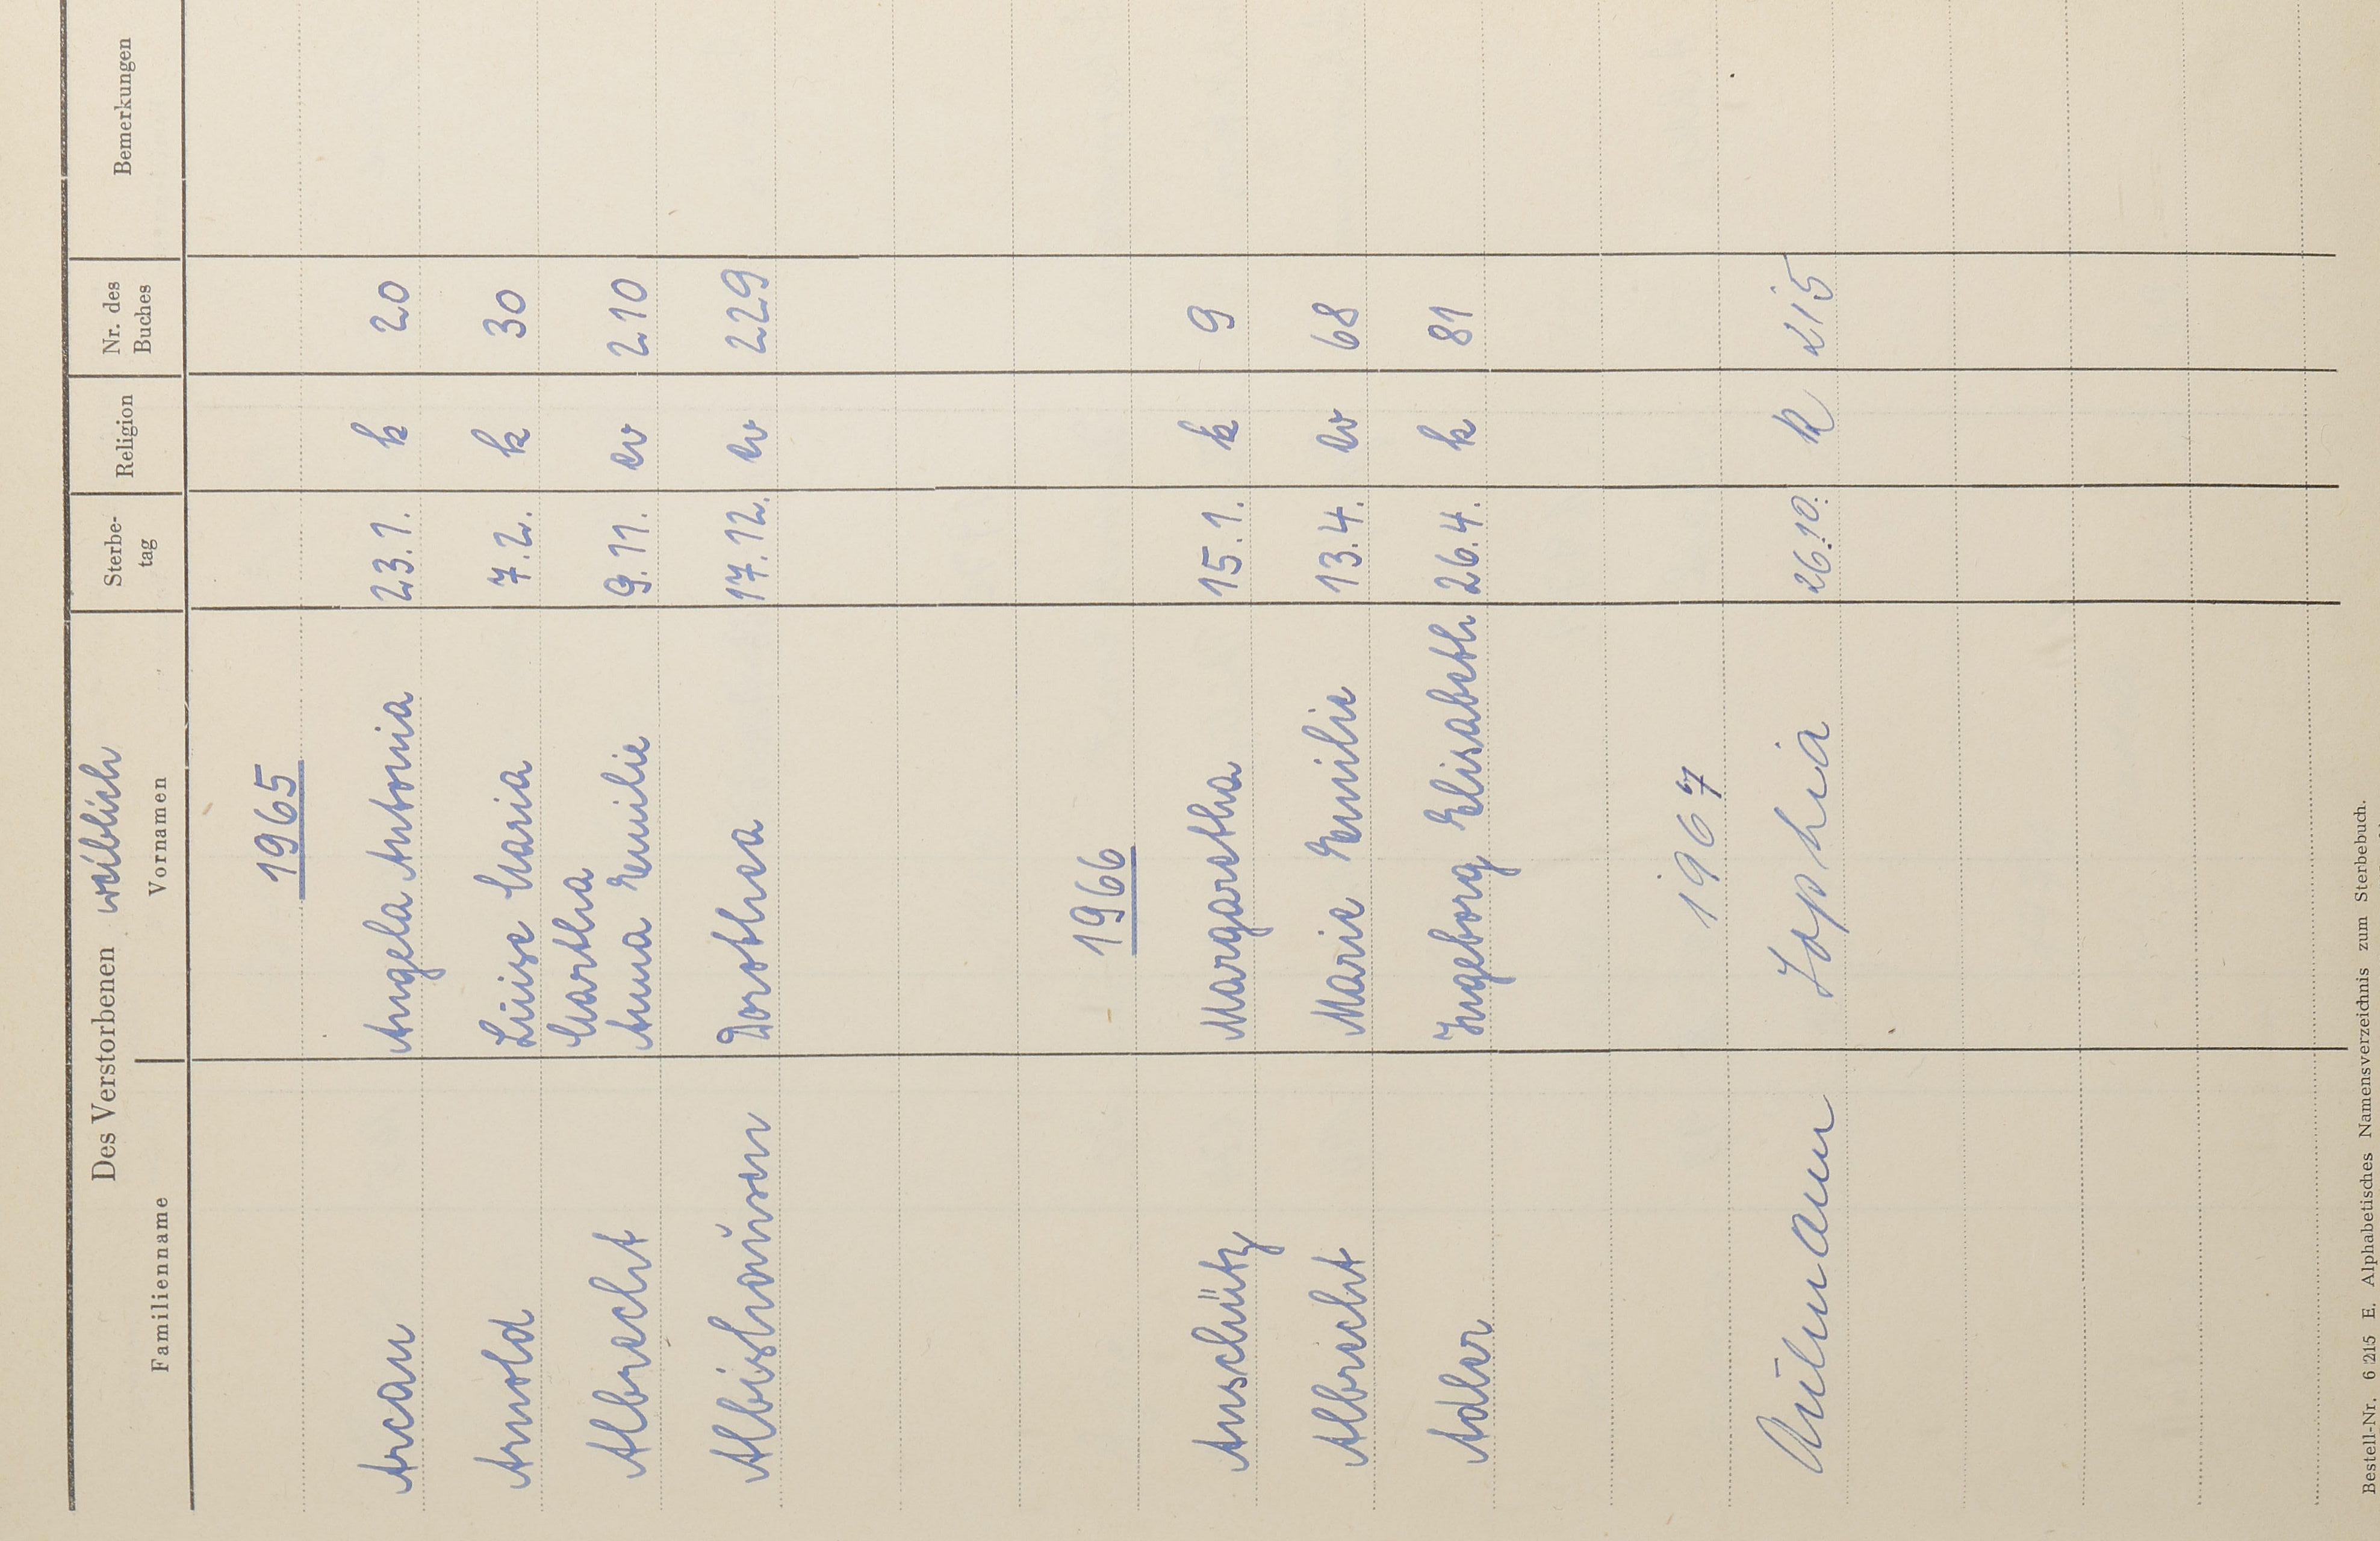 Des Verstorbenen weiblich
Familienname Vornamen Sterbe-tag Religion Nr. des Buches Bemerkungen
1965
Arcan Angela Antonia 23.1. k 20
Arnold Luise Maria 7.2. k 30
Martha
Albrecht Anna Emilie 9.11. ev 210
Albishausen Dorothea 17.12. ev 229
1966
Anschütz Margaretha 15.1. k 9
Albrecht Marie Emilie 13.4. ev 68
Adler Ingeborg Elisabeth 26.4. k 81
1967
Sophia 26.10. k 215
Bestell-Nr. 6 215 E. Alphabetisches Namensverzeichnis zum Sterbebuch.